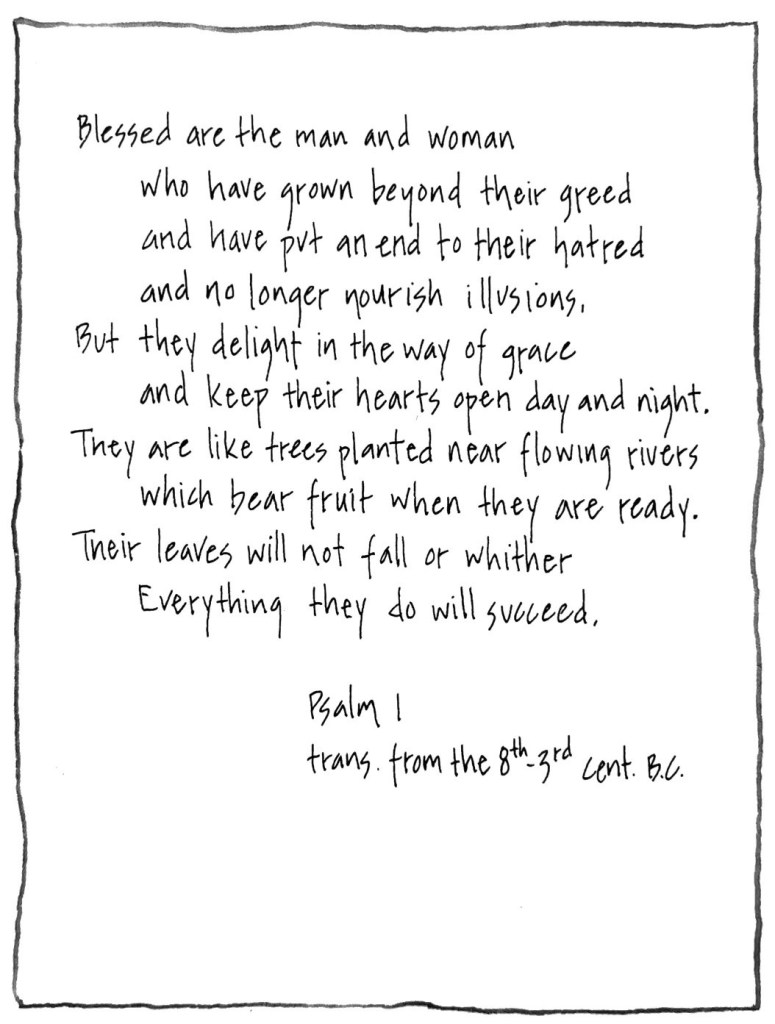 Blessed are the man and woman
who have grown beyond their greed
and have put an end to their hatred
and no longer nourish illusions.
But they delight in the way of grace
and keep their hearts open day and night.
They are like trees planted near flowing rivers
which bear fruit when they are ready.
Their leaves will not fall or whither
Everything they do will succeed.
Psalm 1
trans. from the 8th-3rd cent. B.C.